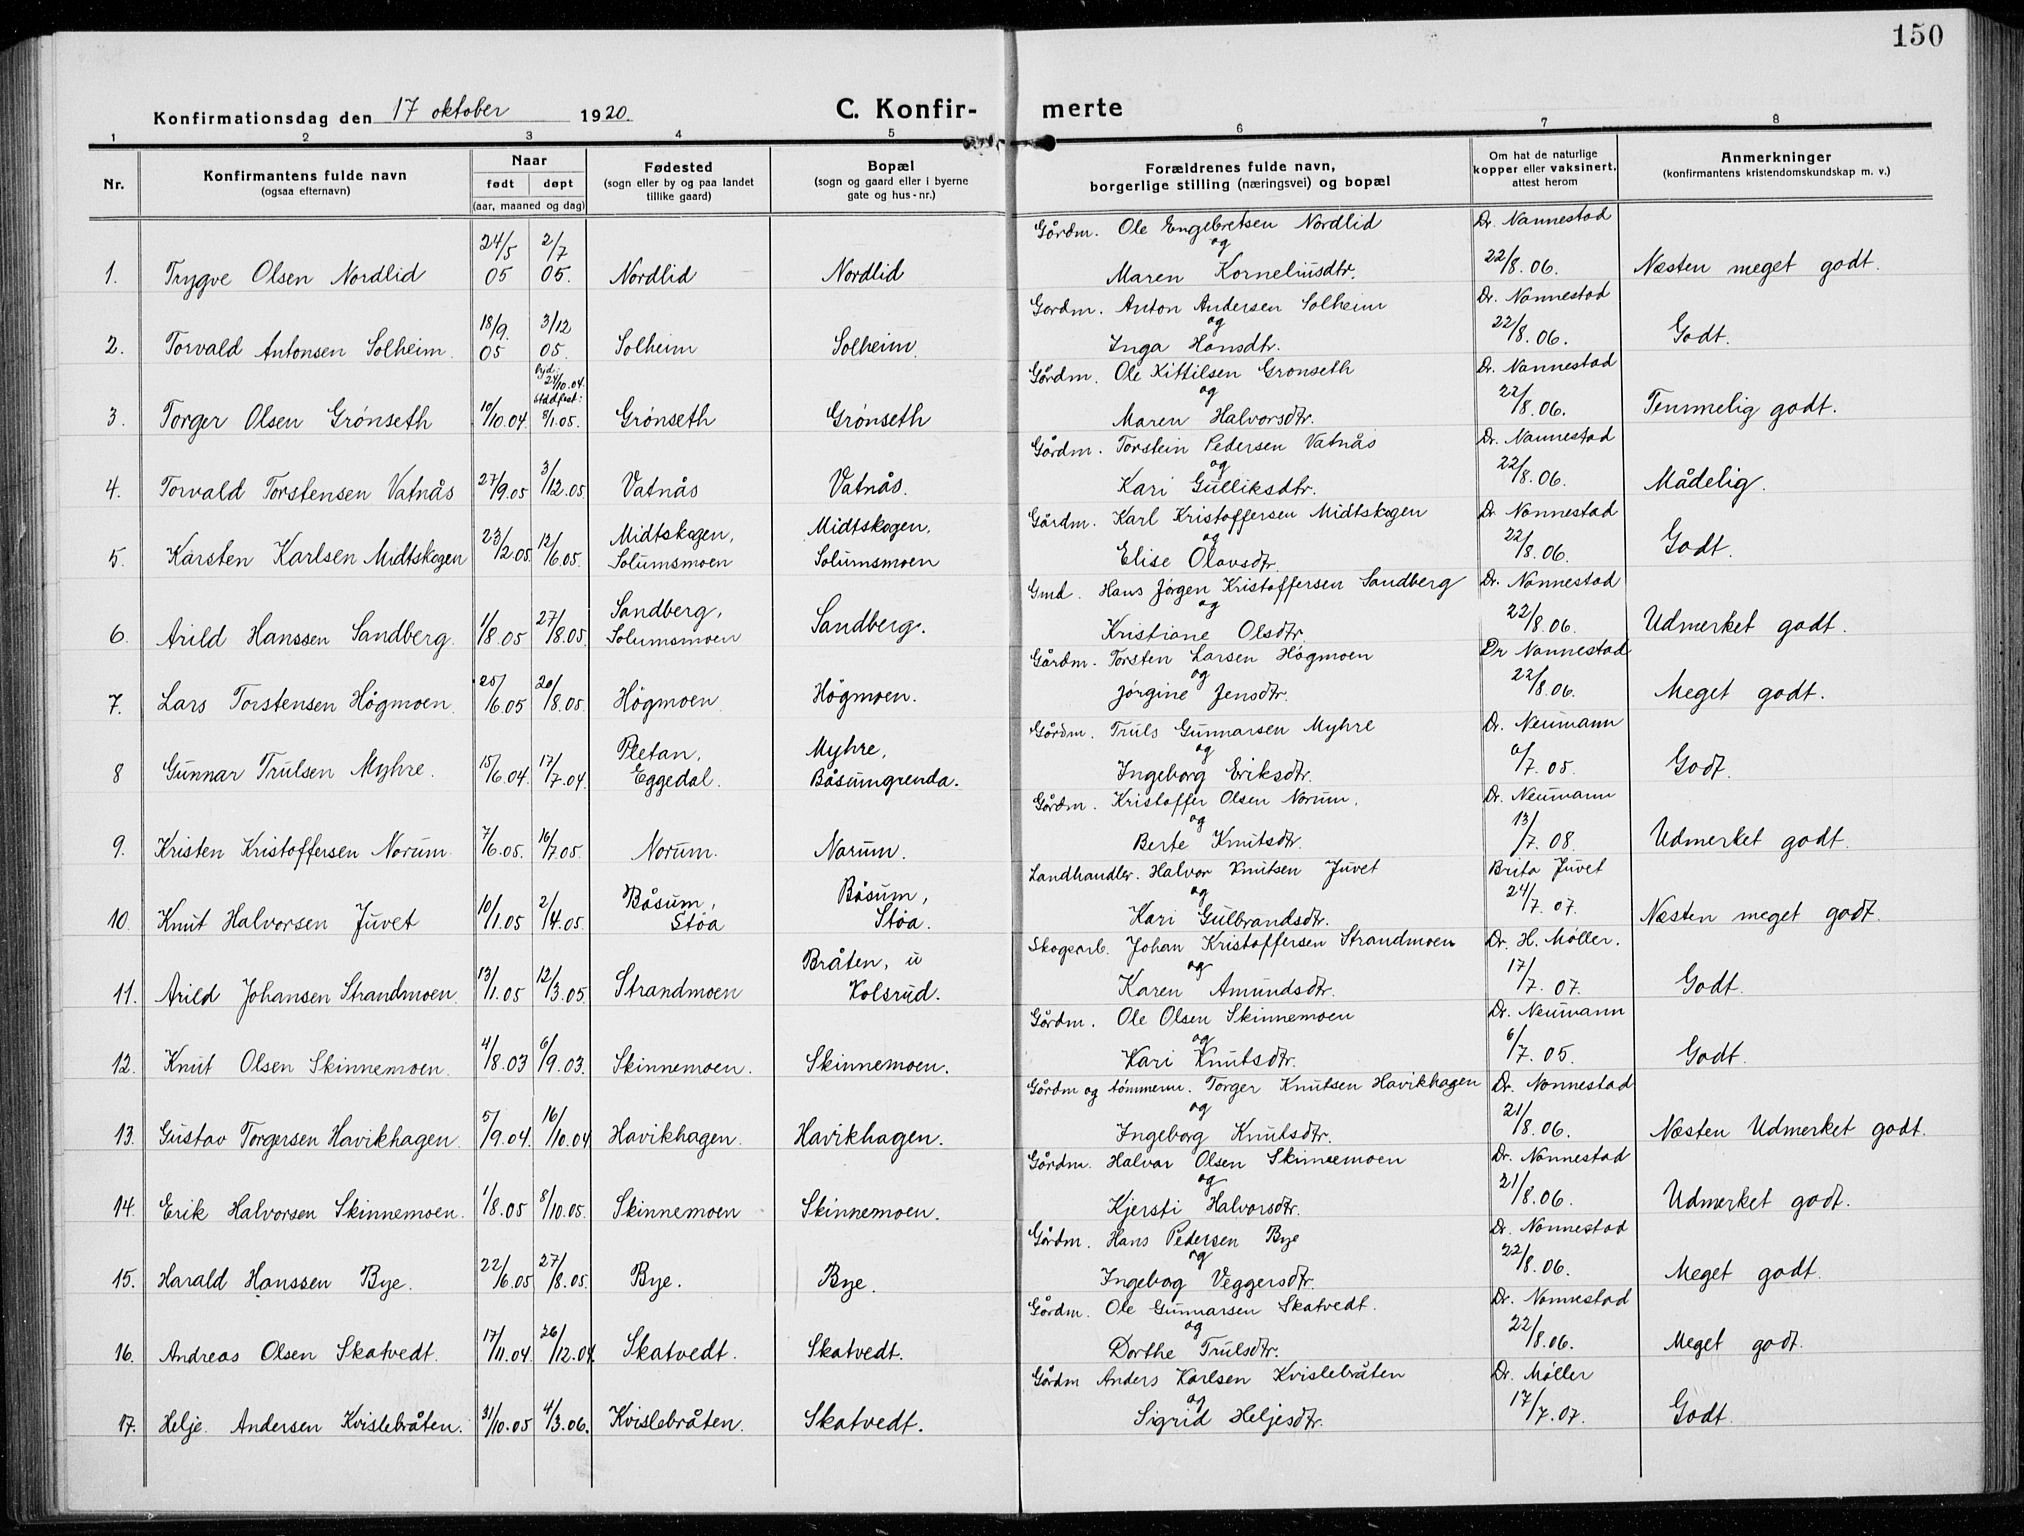 150
Konfirmationsdag den 17 oktober 1920. C. Konfir- merte
1 2 3 4 5 6 7 8
Nr.
Konfirmantens fulde navn
(ogsaa efternavn)
Naar
født døpt
(aar, maaned og dag)
Fødested
(sogn eller by og paa landet
tillike gaard)
Bopæl
(sogn og gaard eller i byerne
gate og hus-nr.)
Forældrenes fulde navn,
borgerlige stilling (næringsvei) og bopæl
Om hat de naturlige
kopper eller vaksinert,
attest herom
Anmerkninger
(konfirmantens kristendomskundskap m. v.)
Gårdm. Ole Engebretsen Nordlid Dr. Nannestad
1. Trygve Olsen Nordlid 24/5 05 2/7 05. Nordlid Nordlid og Maren Korneliusdtr. 22/8.06. Næsten meget godt.
Gårdm. Anton Andersen Solheim Dr. Nannestad
2. Torvald Antonsen Solheim. 18/9. 05 3/12 05. Solheim Solheim. og Inga Hansdtr. 22/8.06. Godt.
Gårdm. Ole Kittilsen Grønseth Dr. Nannestad
3. Torger Olsen Grönseth 10/10.04 24/10.04. stadfest: 8/1.05. Grönseth Grönseth og Maren Halvorsdtr. 22/8.06. Temmelig godt.
Gårdm. Torstein Pedersen Vatnås Dr. Nannestad
4. Torvald Torstensen Vatnås 27/9.05 3/12.05. Vatnås Vatnås. og Kari Gulliksdtr. 22/8.06. Mådelig.
Gårdm. Karl Kristoffersen Midtskogen Dr. Nannestad
5. Karsten Karlsen Midtskogen 23/2.05. 12/6.05. Midtskogen, Solumsmoen Midtskogen, Solumsmoen og Elise Olavsdtr. 22/8.06. Godt.
Gmd. Hans Jørgen Kristoffersen Sandberg Dr. Nannestad
6. Arild Hanssen Sandberg. 1/8.05 27/8.05. Sandberg, Solumsmoen Sandberg. og Kristiane Olsdtr. 22/8.06. Udmerket godt.
Gårdm. Torsten Larsen Högmoen Dr Nannestad
7. Lars Torstensen Högmoen. 25/6.05 20/8.05. Högmoen Högmoen. og Jørgine Jensdtr. 22/8.06. Meget godt.
Gårdm. Truls Gunnarsen Myhre Dr. Neumann
8 Gunnar Trulsen Myhre. 15/6.04. 17/7.04. Pletan, Eggedal. Myhre, Båsumgrenda. og Ingeborg Eriksdtr. 6/7.05. Godt.
Gårdm. Kristoffer Olsen Norum, Dr. Neumann
9. Kristen Kristoffersen Norum. 7/6.05. 16/7.05. Norum. Norum. og Berte Knutsdtr. 13/7.08. Udmerket godt.
Landhandler. Halvor Knutsen Juvet Brita Juvet
10. Knut Halvorsen Juvet 10/1.05 2/4.05. Båsum, Støa Båsum, Støa. og Kari Gulbrandsdtr. 24/7.07. Næsten meget godt.
Skogsarb. Johan Kristoffersen Strandmoen Dr. H. Møller.
11. Arild Johansen Strandmoen. 13/1.05 12/3.05. Strandmoen Bråten, u Kolsrud. og Karen Amundsdtr. 17/7.07. Godt.
Gårdm. Ole Olsen Skinnemoen Dr. Neumann
12. Knut Olsen Skinnemoen. 4/8.03 6/9.03. Skinnemoen. Skinnemoen. og Kari Knutsdtr. 6/7.05. Godt.
Gårdm og tömmerm. Torger Knutsen Havikhagen Dr. Nannestad
13. Gustav Torgersen Havikhagen. 5/9.04. 16/10.04 Havikhagen. Havikhagen. og Ingeborg Knutsdtr. 21/8.06. Næsten Udmerket godt.
Gårdm. Halvor Olsen Skinnemoen Dr. Nannestad
14. Erik Halvorsen Skinnemoen. 1/8.05 8/10.05. Skinnemoen Skinnemoen. og Kjersti Halvorsdtr. 21/8.06. Udmerket godt.
Gårdm. Hans Pedersen Bye Dr. Nannestad
15. Harald Hanssen Bye. 22/6.05 27/8.05. Bye. Bye. og Ingebog Veggersdtr. 22/8.06. Meget godt.
Gårdm. Ole Gunnarsen Skatvedt. Dr. Nannestad
16. Andreas Olsen Skatvedt. 17/11.04. 26/12.04. Skatvedt. Skatvedt. og Dorthe Trulsdtr. 22/8.06. Meget godt.
Gårdm Anders Karlsen Kvislebråten Dr. Møller
17. Helje Andersen Kvislebråten. 31/10.05 4/3.06. Kvislebråten. Skatvedt. og Sigrid Heljesdtr. 17/7.07. Godt.